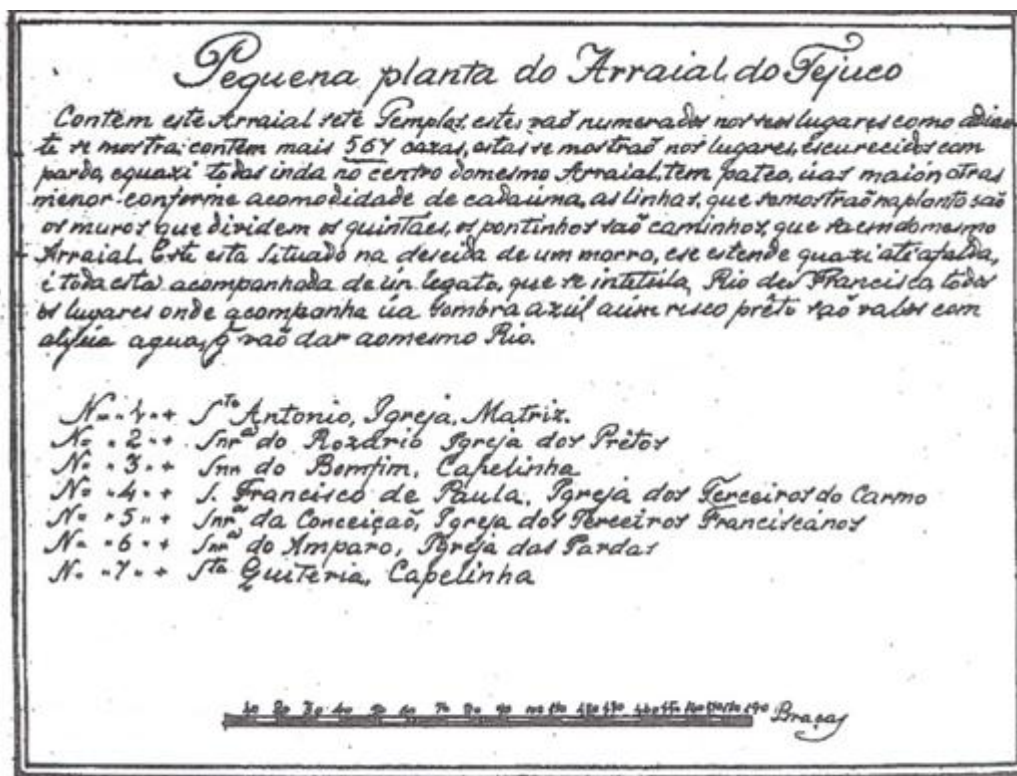 Pequena planta do Arraial do Tejuco
Contèm este Arraial sete Templos, estes vaõ numerados nos seos lugares como adian-
te se mostra; contèm mais 564 cazas, estas se mostraõ nos lugares, escurecidos com
pardo, equazi todas inda no centro domesmo Arraial, tem patèo, úas maior, otras
menor conforme acomodidade de cadaúma, as linhas, que semostraõ naplanta saõ
os muros que dividem os quintaes, os pontinhos saõ caminhos, que saem domesmo
Arraial. Este esta situado na descida de um morro, ese estende quazi atè afalda,
è toda esta acompanhada de ún regato, que se intitúla, Rio des Francisco, todos
os lugares onde acompanha úa sombra azúl aúm risco prêto saõ valos com
algúa agua, q̃ vaõ dar aomesmo Rio.
N= "1" + Sto Antonio, Igreja, Matriz.
N= "2" + Snrª do Rozario Igreja dos Prêtos
N= "3" + Snr do Bomfim, Capelinha
N= "4" + S. Francisco de Paula, Igreja dos Terceiros do Carmo
N= "5" + Snrª da Conceiçaõ, Igreja dos Terceiros Franciscános
N= "6" + Snrª do Amparo, Igreja das Pardas
N= "7" + Sta Quiteria, Capelinha
10 20 30 40 50 60 70 80 90 Braças